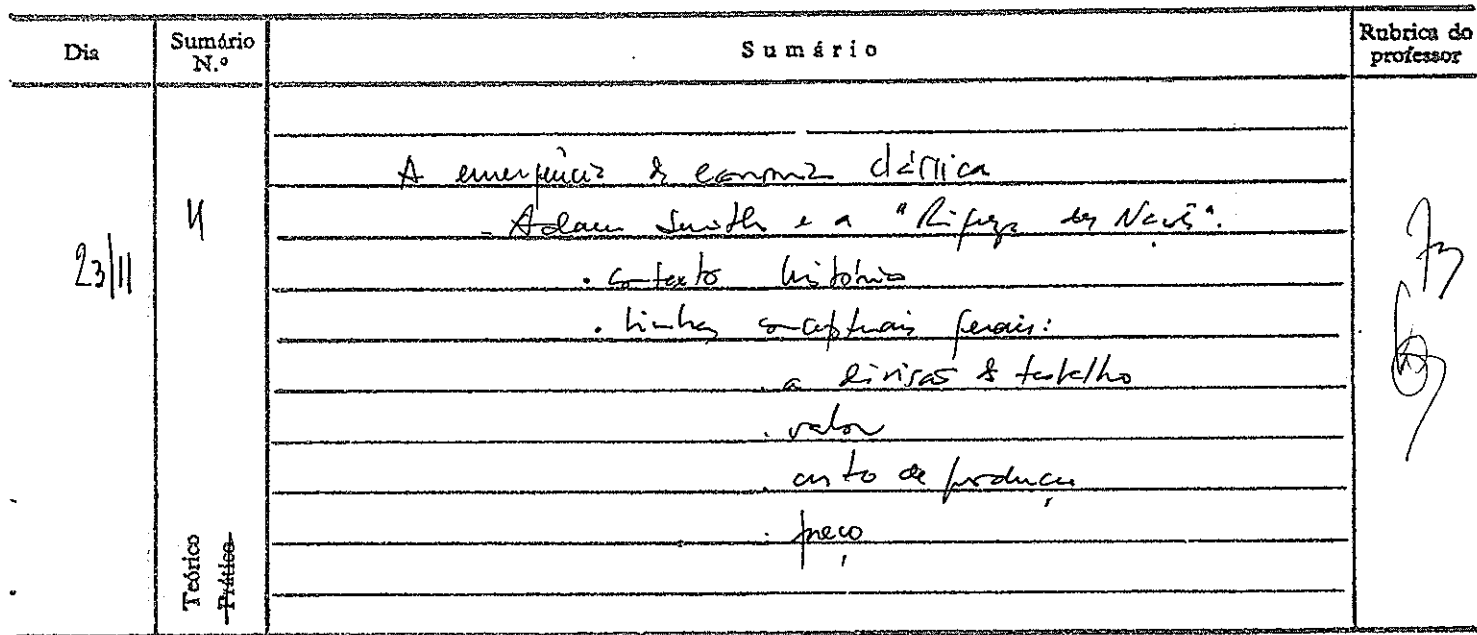 Dia
Sumário N.º
Sumário
Rubrica do professor
A emergência da economia clássica
- Adam Smith e a "Riqueza das Nações".
23/11
. contexto histórico
. linhas conceptuais gerais:
. a divisão do trabalho
. valor
. custo de produção
. preço
Teórico
Prático